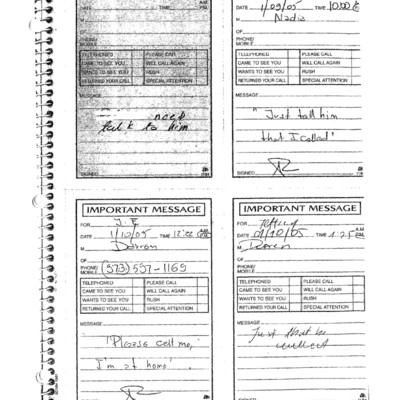 DATE TIME A.M. P.M.
M
OF
PHONE/
MOBILE
TELEPHONED PLEASE CALL
CAME TO SEE YOU WILL CALL AGAIN
WANTS TO SEE YOU RUSH
RETURNED YOUR CALL SPECIAL ATTENTION
MESSAGE
need
talk to him
SIGNED
DATE 1/09/05 TIME 10:00
M Nadia
OF
PHONE/
MOBILE
TELEPHONED PLEASE CALL
CAME TO SEE YOU WILL CALL AGAIN
WANTS TO SEE YOU RUSH
RETURNED YOUR CALL SPECIAL ATTENTION
MESSAGE
"Just tell him
that I called"
SIGNED
IMPORTANT MESSAGE
FOR J. E
DATE 1/10/05 TIME
M
OF
PHONE/
MOBILE (573) 597-1169
TELEPHONED PLEASE CALL
CAME TO SEE YOU WILL CALL AGAIN
WANTS TO SEE YOU RUSH
RETURNED YOUR CALL SPECIAL ATTENTION
MESSAGE
"Please call me,
I'm at home".
SIGNED
IMPORTANT MESSAGE
FOR Jeffrey
DATE 01/10/05 TIME A.M. P.M.
M
OF
PHONE/
MOBILE
TELEPHONED PLEASE CALL
CAME TO SEE YOU WILL CALL AGAIN
WANTS TO SEE YOU RUSH
RETURNED YOUR CALL SPECIAL ATTENTION
MESSAGE
SIGNED